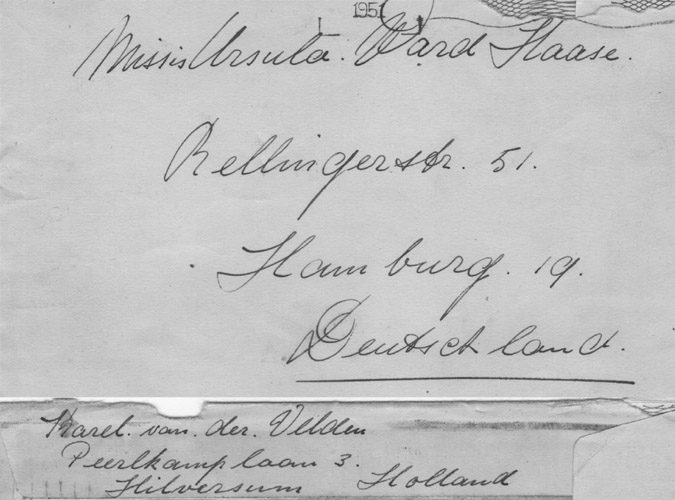 1951
Missis Ursula. Ward Haase.
Rellingerstr. 51.
Hamburg. 19.
Deutschland.
Karel. van. der. Velden
Peerlkamplaan 3.
Hilversum Holland